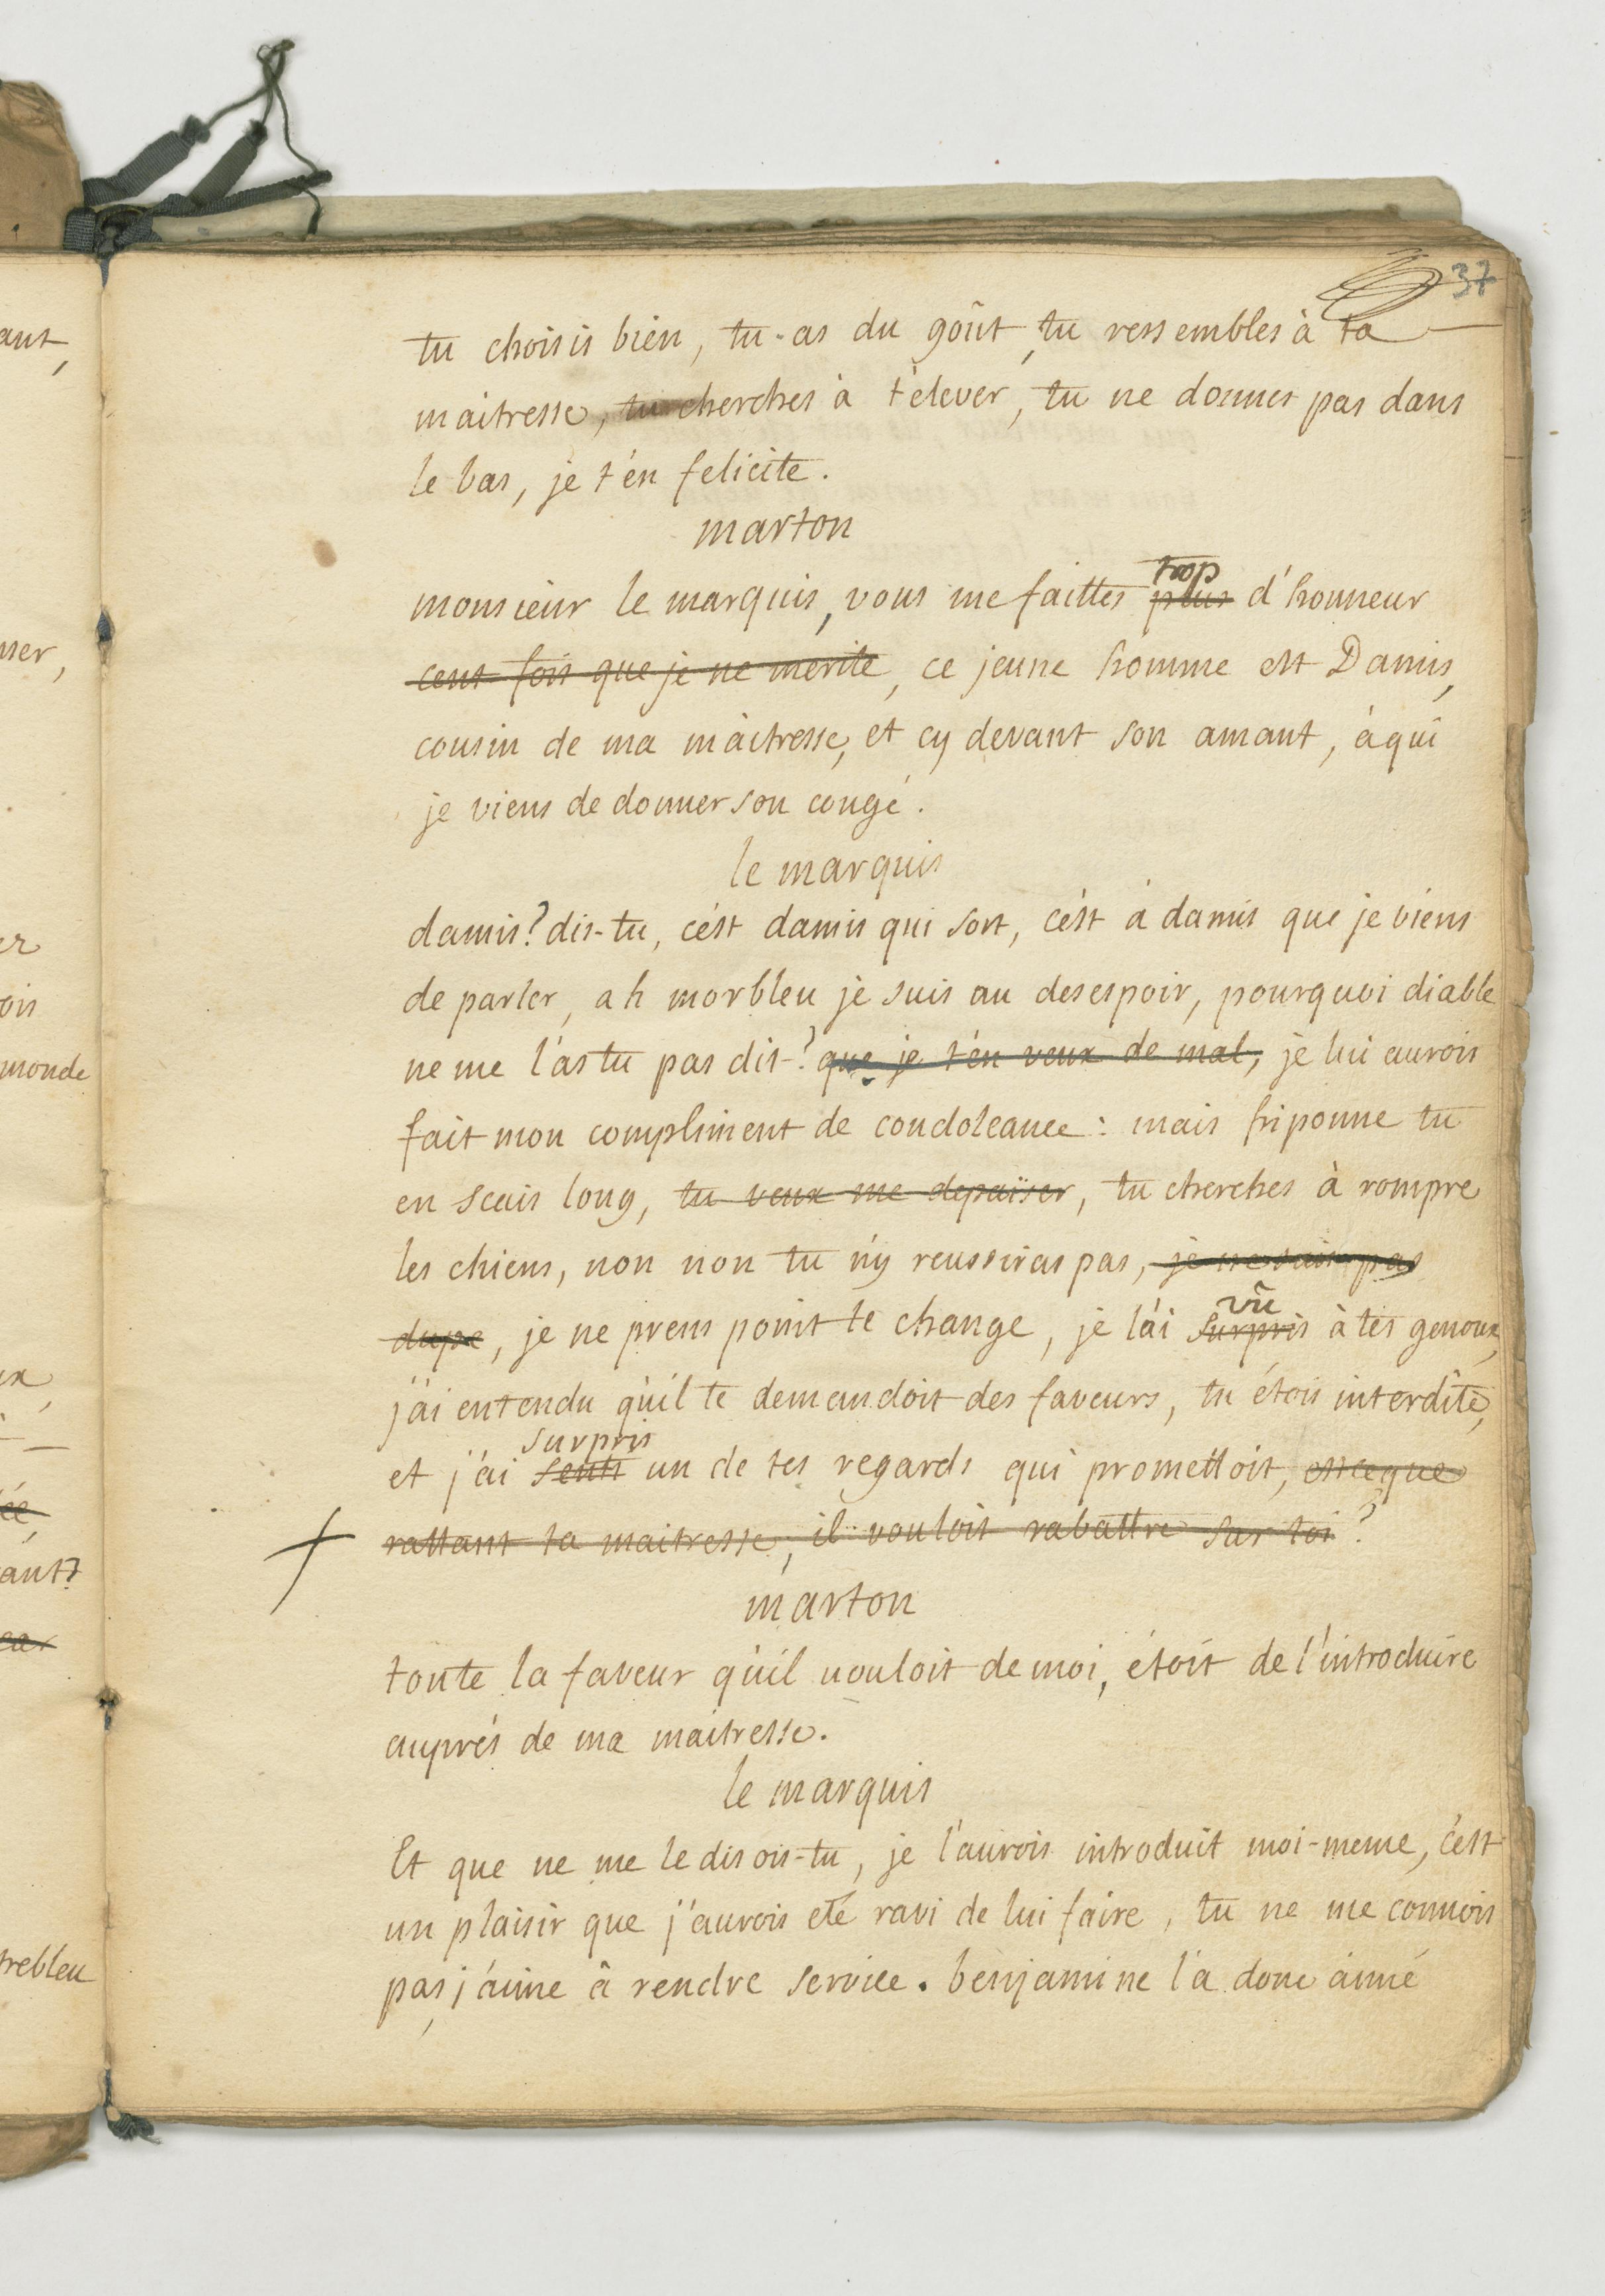 37
tu choisis bien, tu-as du goût, tu ressembles à ta
maitresse, tu cherches à t'elever, tu ne donnes pas dans
le bas, je t'en felicite.
marton
trop
monsieur le marquis, vous me faittes plus d'honneur
cent fois que je ne merite, ce jeune homme est Damis,
cousin de ma maitresse, et cy devant son amant, à qui
je viens de donner son congé.
le marquis
damis? dis-tu, c'est damis qui sort, c'est à damis que je viens
de parler, ah morbleu je suis au desespoir, pourquoi diable
ne me l'as tu pas dit-? que je t'en veux de mal, je lui aurois
fait mon compliment de condoleance: mais friponne tu
en scais long, tu veux me depaïser, tu cherches à rompre
les chiens, non non tu n'y reussiras pas, je ne suis pas
vû
dupe, je ne prens point le change, je l'ai surpris à tes genoux,
j'ai entendu qu'il te demandoit des faveurs, tu étois interdite,
surpris
et j'ai senti un de tes regards qui promettoit, est ce que
rattant ta maitresse, il vouloit rabattre sur toi?
marton
toute la faveur qu'il vouloit de moi, étoit de l'introduire
auprés de ma maitresse.
le marquis
Et que ne me le disois-tu, je l'aurois introduit moi-meme, c'est
un plaisir que j'aurois eté ravi de lui faire, tu ne me connois
pas, j'aime à rendre service. benjamine l'a donc aimé
ant,
ner,
er
ois
monde
ux,
ée,
ant?
car
trebleu